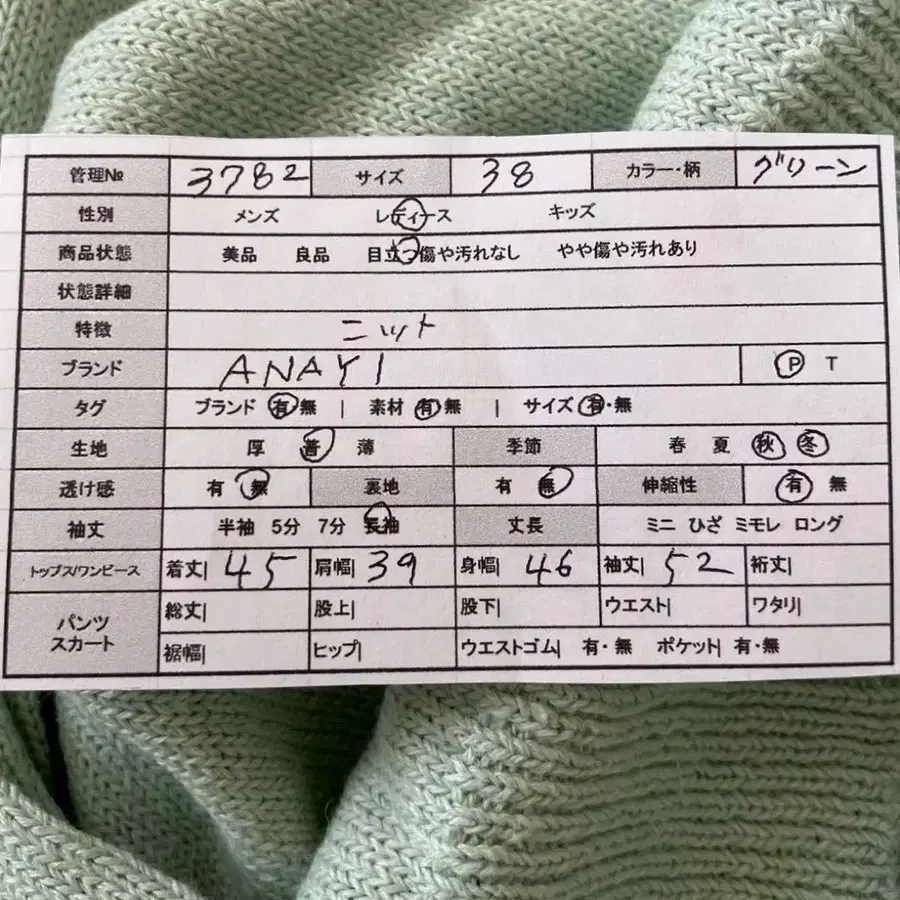 管理№ 3782 サイズ 38 カラー・柄 グリーン
性別 メンズ レディース キッズ
商品状態 美品 良品 目立つ傷や汚れなし やや傷や汚れあり
状態詳細
特徴 ニット
ブランド ANAYI P T
タグ ブランド 有・無 | 素材 有・無 | サイズ 有・無
生地 厚 普 薄 季節 春 夏 秋 冬
透け感 有 無 裏地 有 無 伸縮性 有 無
袖丈 半袖 5分 7分 長袖 丈長 ミニ ひざ ミモレ ロング
トップス/ワンピース 着丈| 45 肩幅| 39 身幅| 46 袖丈| 52 裄丈|
パンツ スカート 総丈| 股上| 股下| ウエスト| ワタリ|
裾幅| ヒップ| ウエストゴム| 有・無 ポケット| 有・無